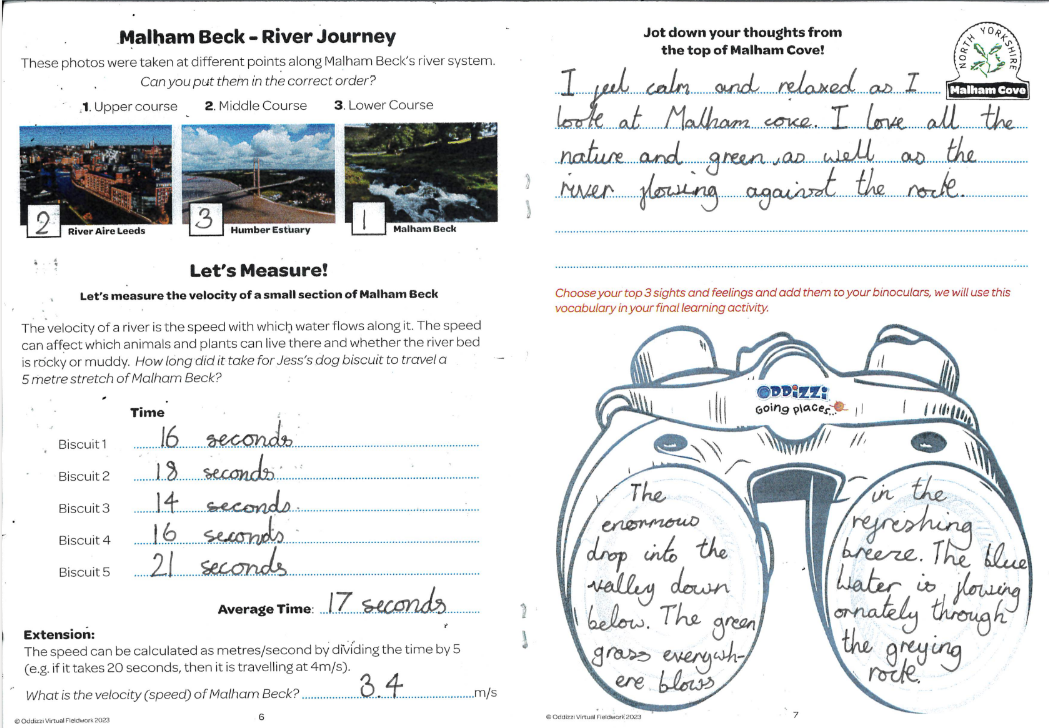 Malham Beck – River Journey
These photos were taken at different points along Malham Beck's river system.
Can you put them in the correct order?
1. Upper course 2. Middle Course 3. Lower Course
2 River Aire Leeds
3 Humber Estuary
1 Malham Beck
Let's Measure!
Let's measure the velocity of a small section of Malham Beck
The velocity of a river is the speed with which water flows along it. The speed
can affect which animals and plants can live there and whether the river bed
is rocky or muddy. How long did it take for Jess's dog biscuit to travel a
5 metre stretch of Malham Beck?
Time
Biscuit 1 16 seconds
Biscuit 2 18 seconds
Biscuit 3 14 seconds
Biscuit 4 16 seconds
Biscuit 5 21 seconds
Average Time: 17 seconds
Extension:
The speed can be calculated as metres/second by dividing the time by 5
(e.g. if it takes 20 seconds, then it is travelling at 4m/s).
What is the velocity (speed) of Malham Beck? 3.4 m/s
© Oddizzi Virtual Fieldwork 2023
6
Jot down your thoughts from
the top of Malham Cove!
NORTH YORKSHIRE
Malham Cove
I feel calm and relaxed as I
look at Malham cove. I love all the
nature and green, as well as the
river flowing against the rock.
Choose your top 3 sights and feelings and add them to your binoculars, we will use this
vocabulary in your final learning activity.
ODDiZZi
Going places...
The
enormous
drop into the
valley down
below. The green
grass everywh-
ere blows
in the
refreshing
breeze. The blue
water is flowing
ornately through
the greying
rock.
© Oddizzi Virtual Fieldwork 2023
7